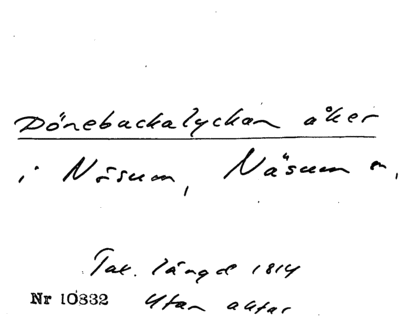 Dönebackalyckan åker
i Näsum, Näsum sn,
Tax. längd 1814
Nr 10832 Utan aktas